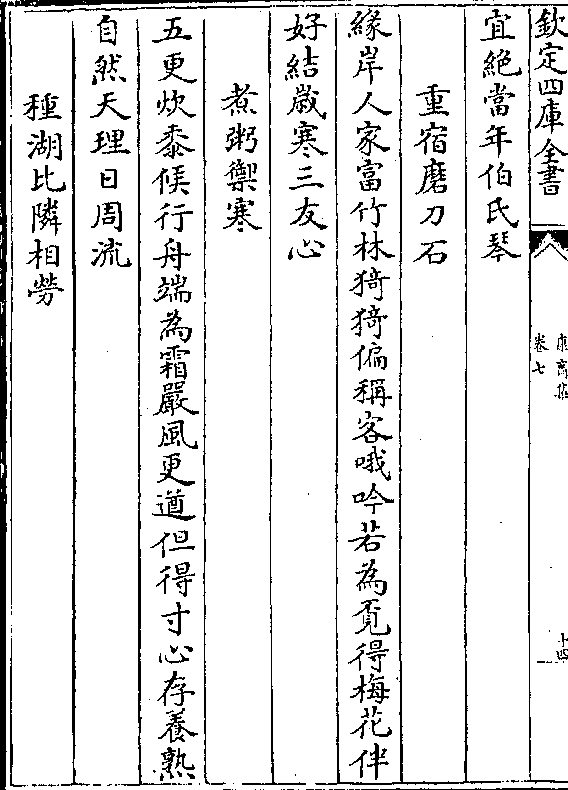 欽定四庫全書
卷七
十四
宜絶當年伯氏琴
重宿磨刀石
緣岸人家富竹林猗猗偏稱客哦吟若為覓得梅花伴
好結歲寒三友心
煮粥禦寒
五更炊黍候行舟端為霜嚴風更遒但得寸心存養熟
自然天理日周流
種湖比隣相勞